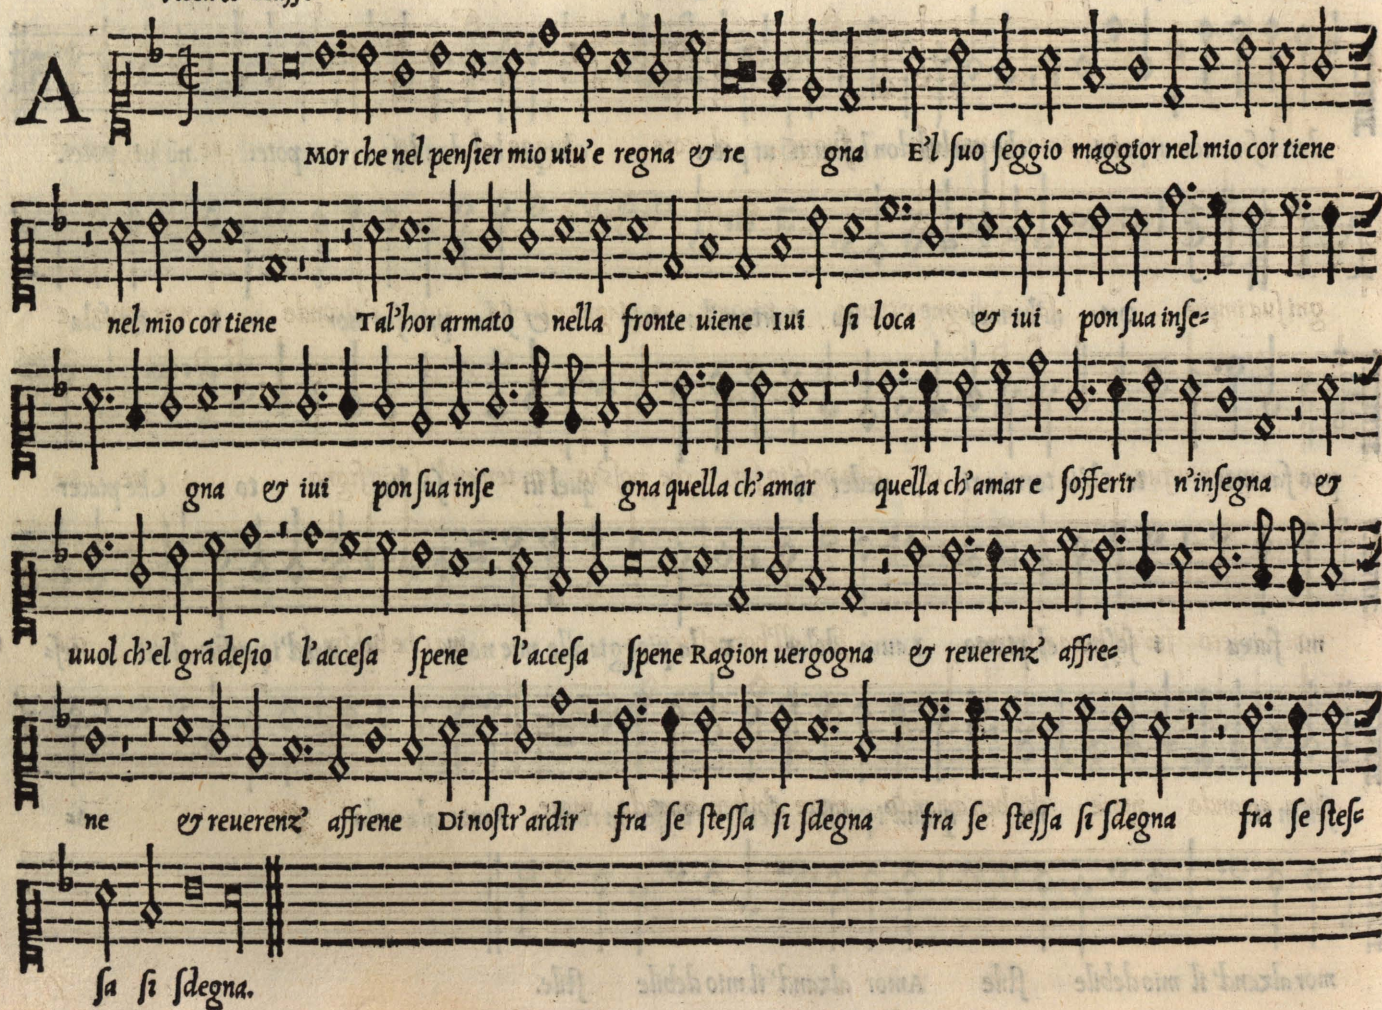 A
Mor che nel pensier mio uiu'e regna & re gna E'l suo seggio maggior nel mio cor tiene
nel mio cor tiene Tal'hor armato nella fronte uiene Iui si loca & iui pon sua inse=
gna & iui pon sua inse gna quella ch'amar quella ch'amar e sofferir n'insegna &
uuol ch'el grã desio l'accesa spene l'accesa spene Ragion uergogna & reuerenz' affre=
ne & reuerenz' affrene Di nostr'ardir fra se stessa si sdegna fra se stessa si sdegna fra se stes=
sa si sdegna.